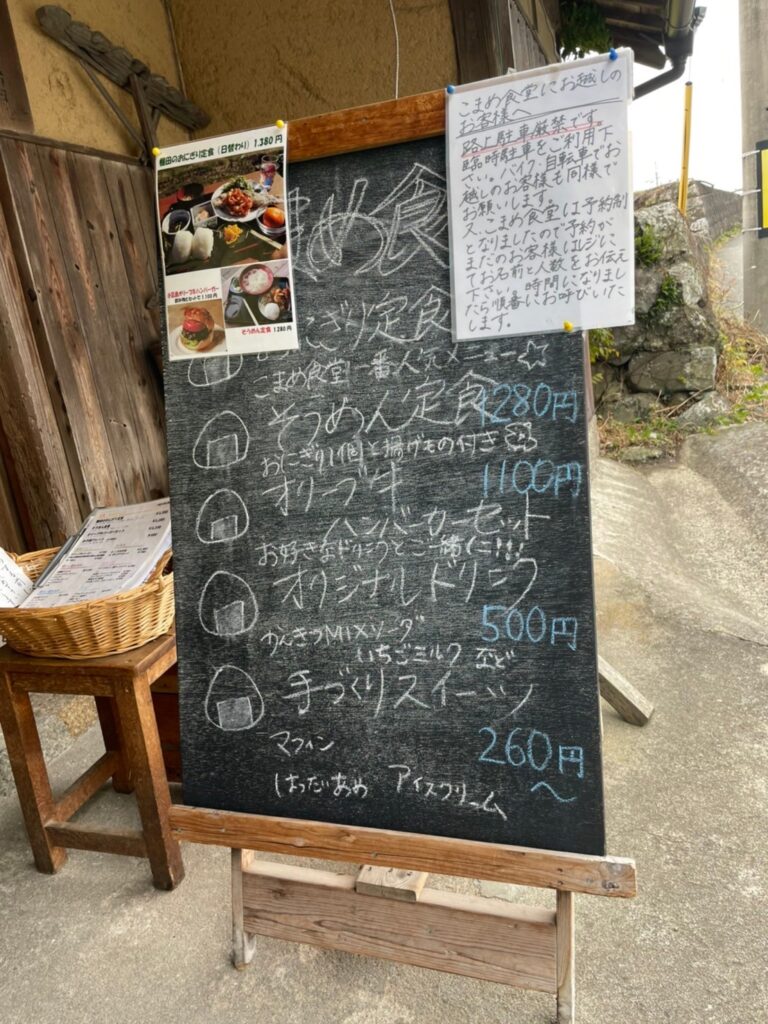 棚田のおにぎり定食（日替わり）1,380円
小豆島オリーブ牛ハンバーガー
飲み物とセットで1,100円
そうめん定食 1280円
こまめ食堂にお越しの
お客様へ
路上駐車厳禁です。
臨時駐車をご利用下
さい。バイク、自転車でお
越しのお客様も同様で
お願いします。
又、こまめ食堂は予約制
となりましたので予約が
まだのお客様はレジに
てお名前と人数をお伝え
下さい。時間になりまし
たら順番にお呼びいた
します。
まめ食
おにぎり定食
こまめ食堂一番人気メニュー☆
そうめん定食 1280円
おにぎり1個と揚げもの付き
オリーブ牛 1100円
ハンバーガーセット
お好きなドリンクとご一緒に!!!
オリジナルドリンク
かんきつMIXソーダ 500円
いちごミルク など
手づくりスイーツ
マフィン 260円
はっだいあめ アイスクリーム 〜